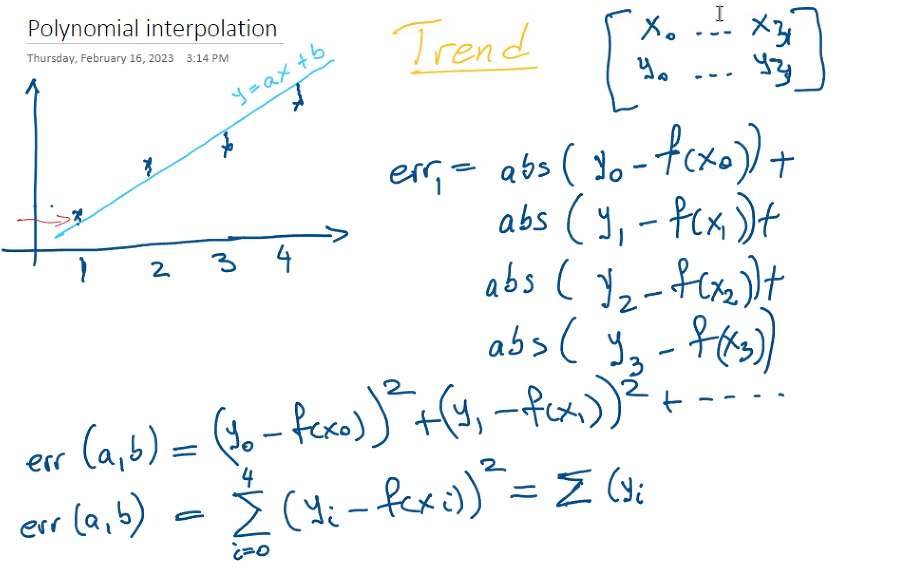 Polynomial interpolation
Thursday, February 16, 2023 3:14 PM
Trend
[ x₀ ... x₃
y₀ ... y₃ ]
y=ax+b
1 2 3 4
err₁ = abs( y₀ - f(x₀)) +
abs ( y₁ - f(x₁))+
abs ( y₂ - f(x₂))+
abs ( y₃ - f(x₃))
err (a,b) = (y₀ - f(x₀))² + (y₁ - f(x₁))² + - - - - -
4
err (a,b) = Σ (yᵢ - f(xᵢ))² = Σ (yᵢ
i=0